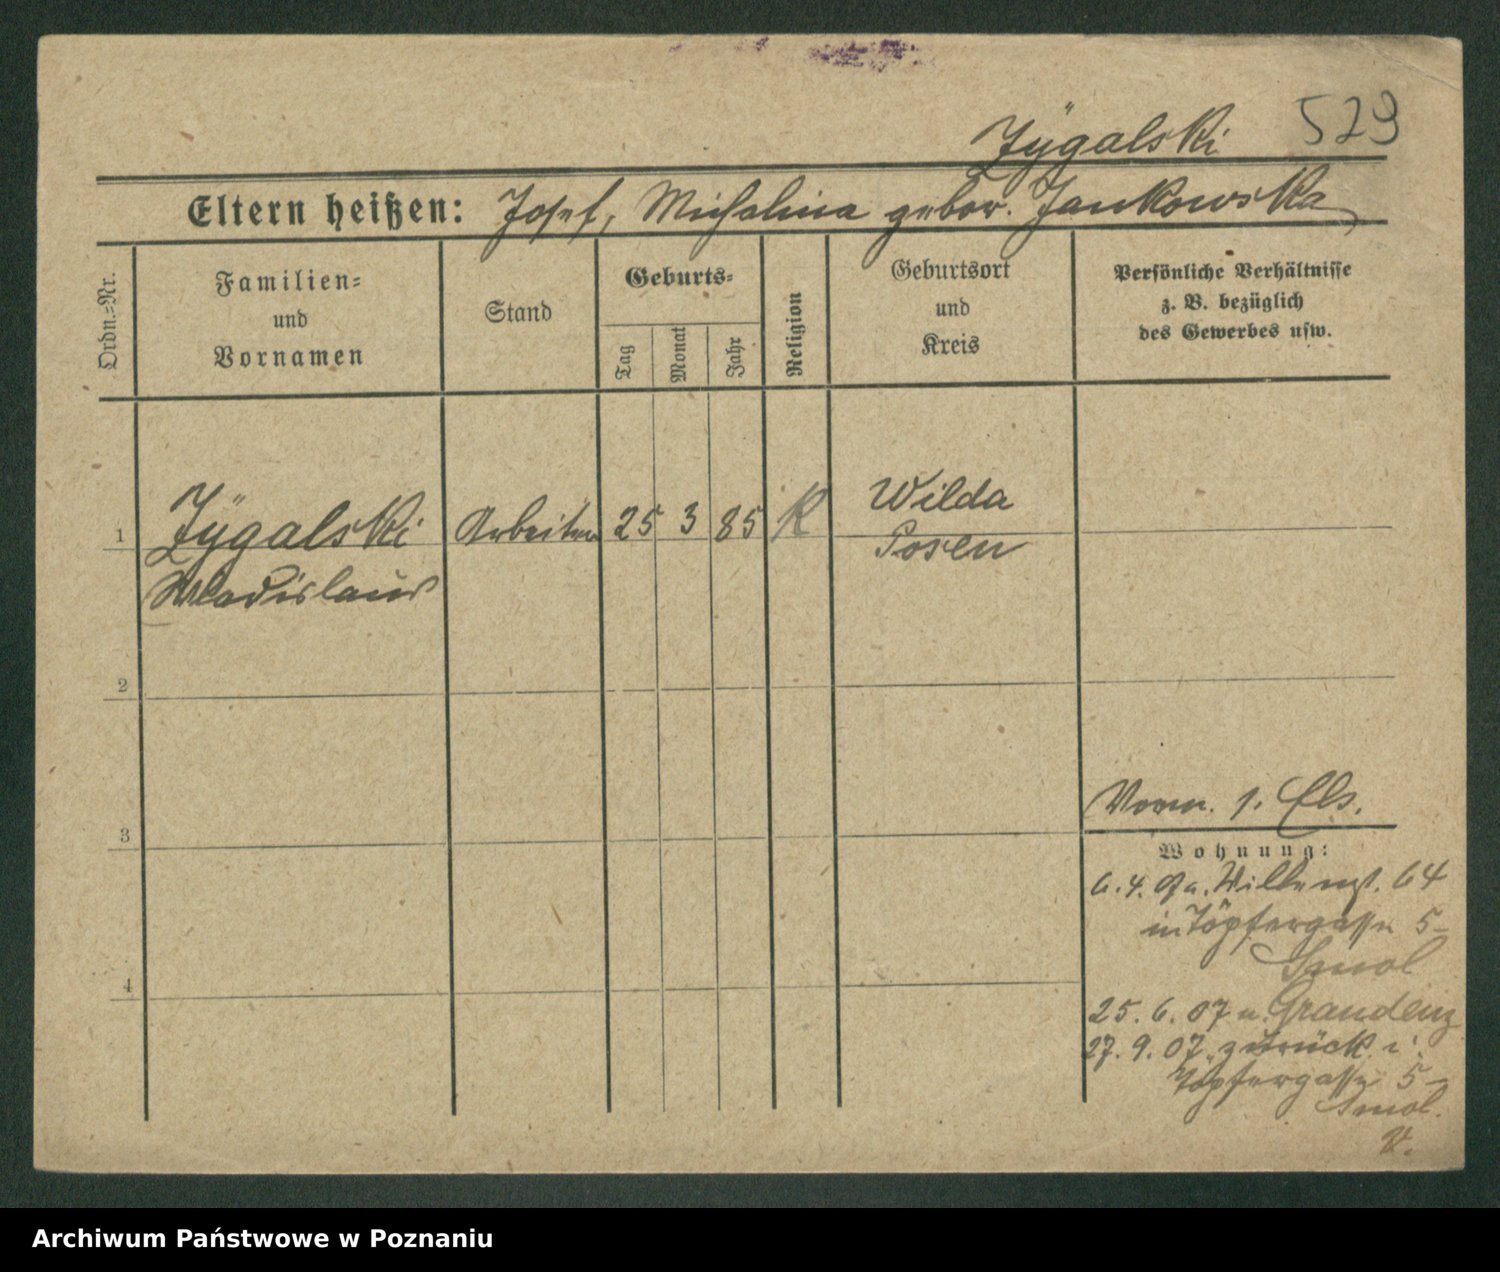 529
Zÿgalski
Eltern heißen: Josef, Michalina gebor. Jankowska
Ordn.-Nr.
Familien-
und
Vornamen
Stand
Geburts-
Tag
Monat
Jahr
Religion
Geburtsort
und
Kreis
Persönliche Verhältnisse
z. B. bezüglich
des Gewerbes usw.
1 Zÿgalski Arbeiter 25 3 85 K Wilda
Wladislaus Posen
2
3
4
Vorm. 1. Els.
Wohnung:
6. 4. 64
in Töpfergasse 5
Smol
25. 6. 07 n. Graudenz
27. 9. 07. zurück i.
Töpfergasse 5
Smol.
Archiwum Państwowe w Poznaniu